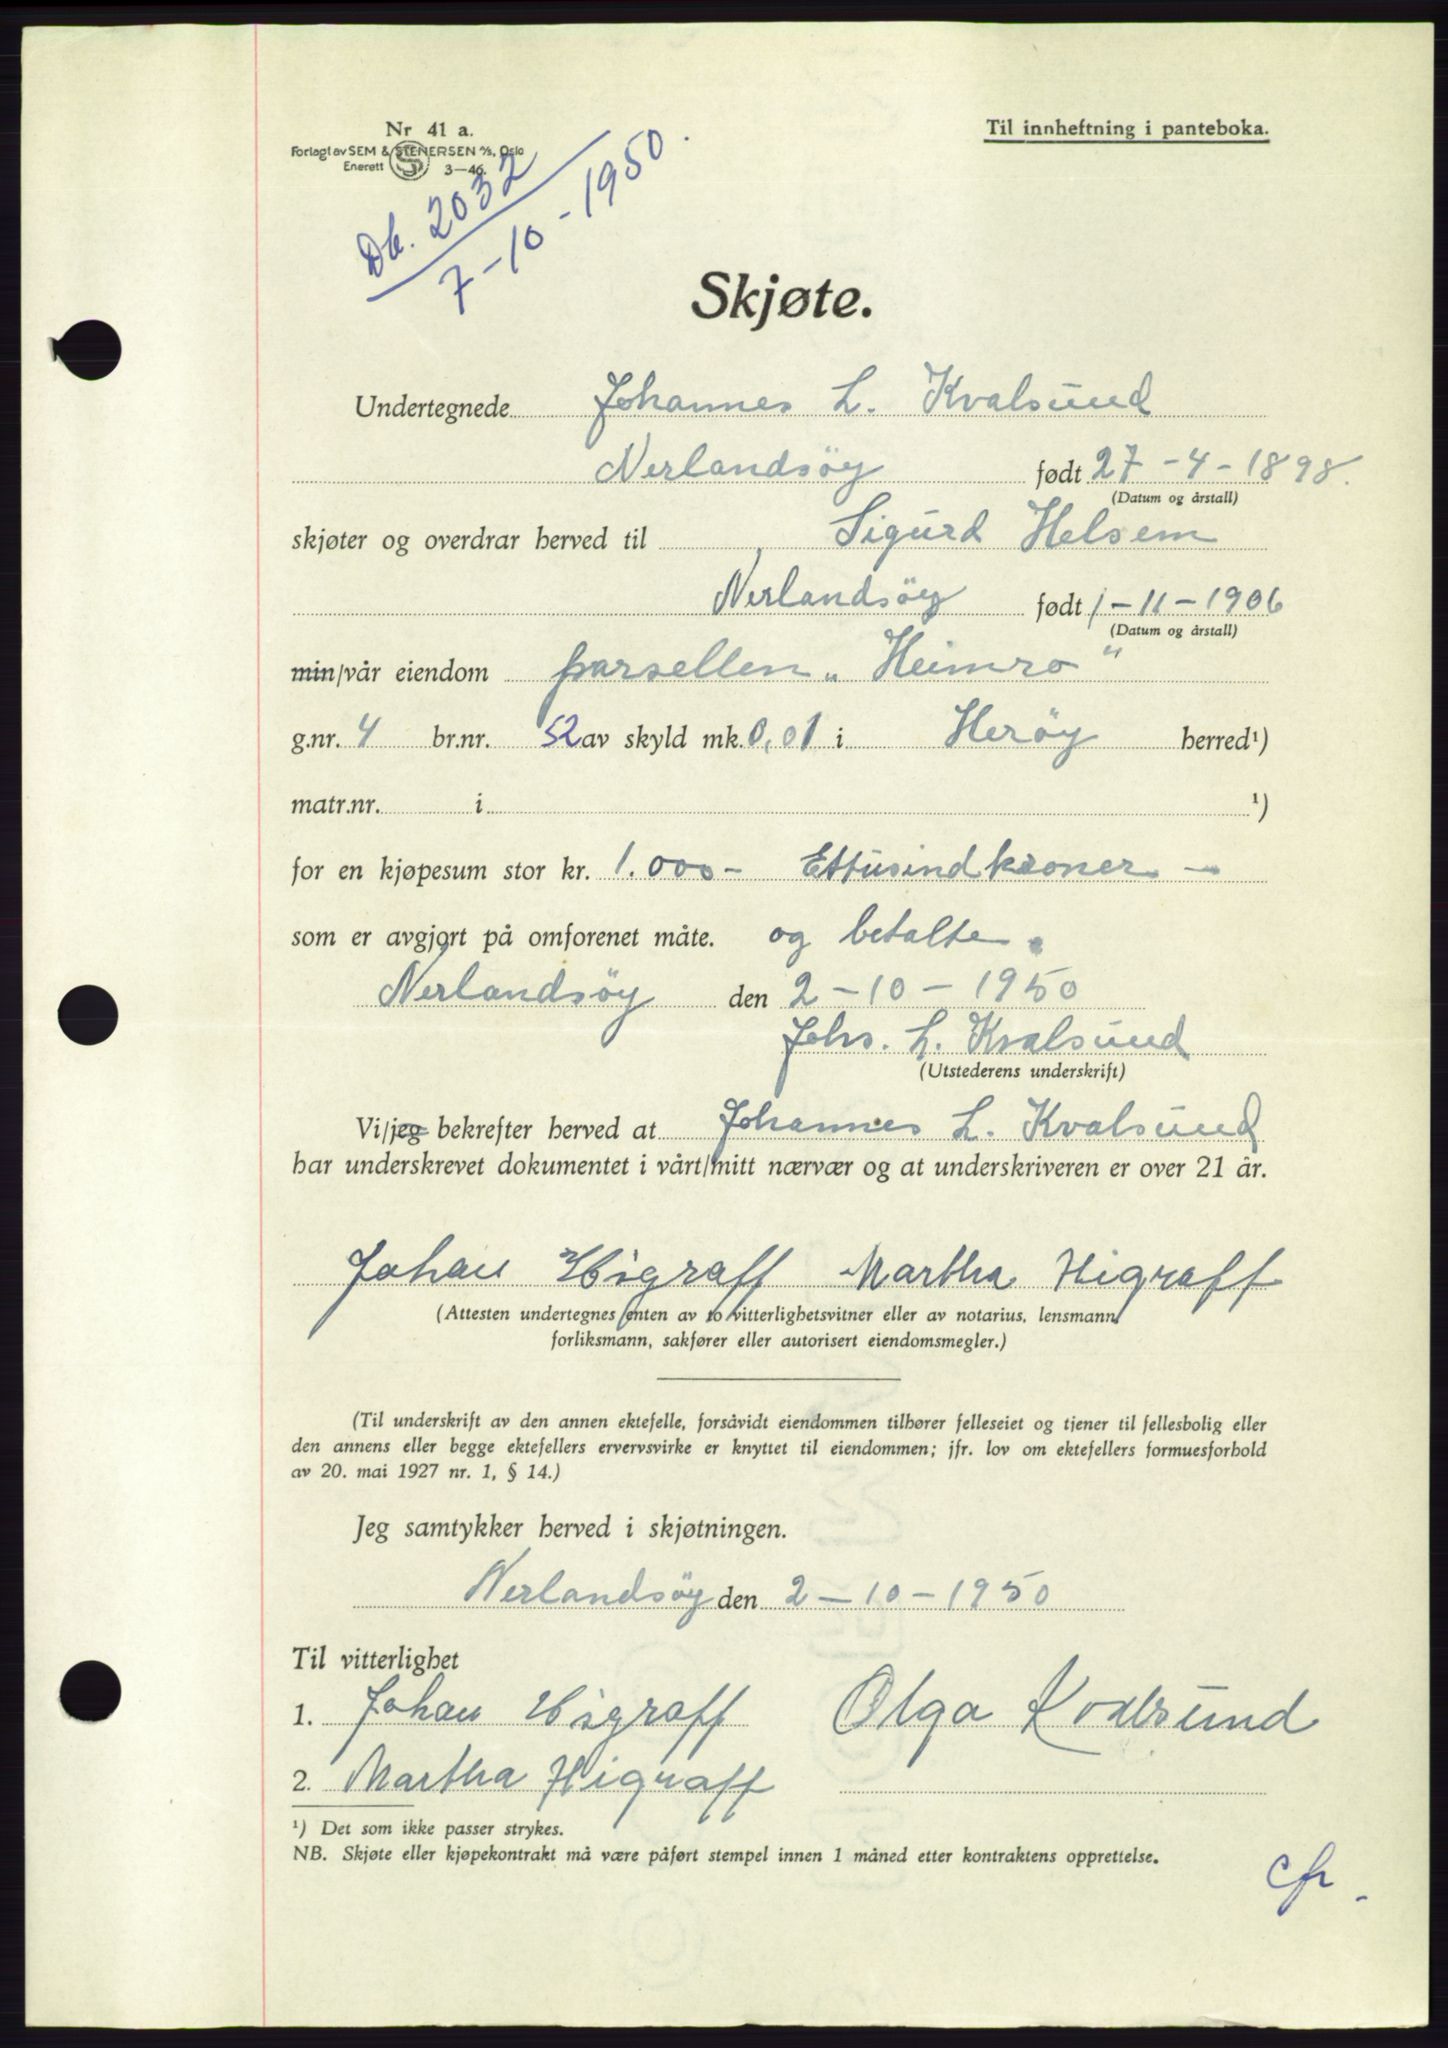 Nr 41 a.
Forlagt av SEM & STENERSEN A/S, Oslo
Enerett S 3—46.
Til innheftning i panteboka.
Db. 2032
7-10-1950.
Skjøte.
Undertegnede Johannes L. Kvalsund
Nerlandsöy født 27-4-1898.
(Datum og årstall)
skjøter og overdrar herved til Sigurd Helsem
Nerlandsöy født 1-11-1906
(Datum og årstall)
min/vår eiendom parsellen „Heimro"
g.nr. 4 br.nr. 52 av skyld mk. 0,01 i Heröy herred¹)
matr.nr. i ¹)
for en kjøpesum stor kr. 1.000- Ettusindkroner -
som er avgjort på omforenet måte. og betalte.
Nerlandsöy den 2-10-1950
Johs. L. Kvalsund
(Utstederens underskrift)
Vi/jeg bekrefter herved at Johannes L. Kvalsund
har underskrevet dokumentet i vårt/mitt nærvær og at underskriveren er over 21 år.
Johan Higraff Martha Higraff
(Attesten undertegnes enten av to vitterlighetsvitner eller av notarius, lensmann,
forliksmann, sakfører eller autorisert eiendomsmegler.)
(Til underskrift av den annen ektefelle, forsåvidt eiendommen tilhører felleseiet og tjener til fellesbolig eller
den annens eller begge ektefellers ervervsvirke er knyttet til eiendommen; jfr. lov om ektefellers formuesforhold
av 20. mai 1927 nr. 1, § 14.)
Jeg samtykker herved i skjøtningen.
Nerlandsöy den 2-10-1950
Til vitterlighet
1. Johan Higraff Olga Kvalsund
2. Martha Higraff
¹) Det som ikke passer strykes.
NB. Skjøte eller kjøpekontrakt må være påført stempel innen 1 måned etter kontraktens opprettelse.